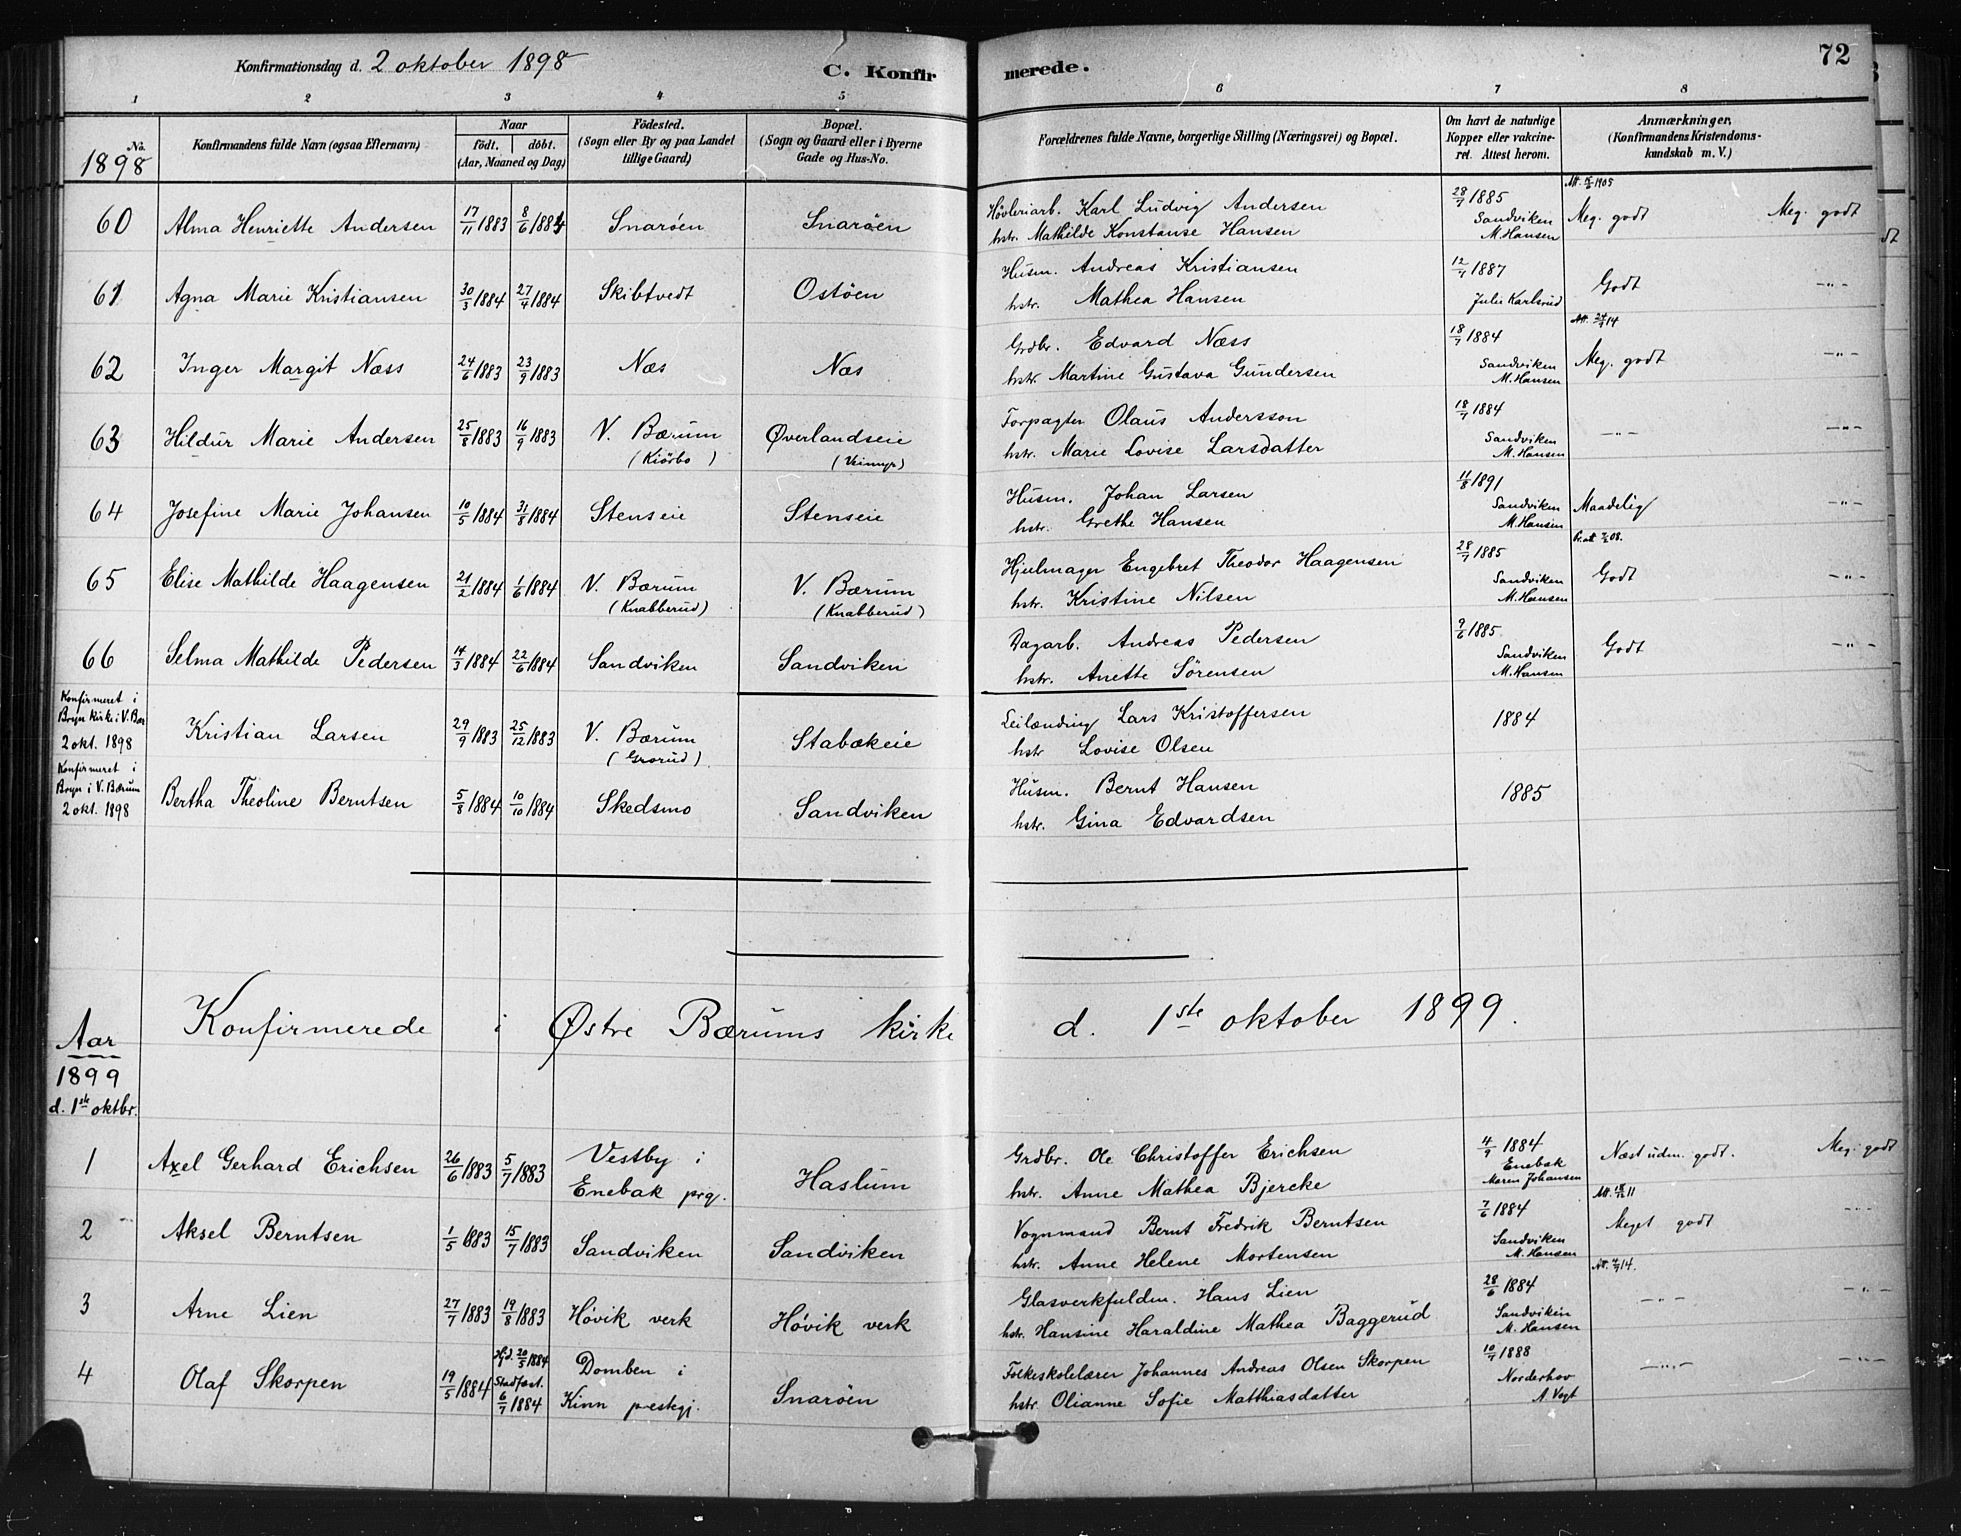 Konfirmationsdag d. 2 oktober 1898
C. Konfirmerede.
72
1 2 3 4 5 6 7 8
No. Konfirmandens fulde Navn (ogsaa Efternavn) Naar födt. döbt. (Aar, Maaned og Dag) Födested. (Sogn eller By og paa Landet tillige Gaard) Bopæl. (Sogn og Gaard eller i Byerne Gade og Hus-No. Forældrenes fulde Navne, borgerlige Stilling (Næringsvei) og Bopæl. Om havt de naturlige Kopper eller vakcineret. Attest herom. Anmærkninger. (Konfirmandens Kristendomskundskab m. V.)
1898
60 Alma Henriette Andersen 17/11 1883 8/6 1884 Snaröen Snaröen Høvleriarb. Karl Ludvig Andersen hstr. Mathilde Konstanse Hansen 28/7 1885 Sandviken M. Hansen Meg. godt Meg. godt
61 Agna Marie Kristiansen 30/3 1884 27/4 1884 Skibtvedt Ostöen Husm. Andreas Kristiansen hstr. Mathea Hansen 1887 Julie Karlsrud Godt -"-
62 Inger Margit Næss 24/6 1883 23/9 1883 Næs Næs Grdbr. Edvard Næss hstr. Martine Gustava Gundersen 18/7 1884 Sandviken M. Hansen Meg. godt -"-
63 Hildur Marie Andersen 25/8 1883 16/9 1883 V. Bærum (Kiörbo) Øverlandseie Forpagter Olaus Andersson hstr. Marie Lovise Larsdatter 18/7 1884 Sandviken M. Hansen -"- -"-
64 Josefine Marie Johansen 10/5 1884 31/8 1884 Stenseie Stenseie Husm. Johan Larsen hstr. Grethe Hansen 11/8 1891 Sandviken M. Hansen Maadelig -"-
65 Elise Mathilde Haagensen 21/2 1884 1/6 1884 V. Bærum (Knabberud) V. Bærum (Knabberud) Hjulmager Engebret Theodor Haagensen hstr. Kristine Nilsen 28/7 1885 Sandviken M. Hansen Godt -"-
66 Selma Mathilde Pedersen 14/3 1884 22/6 1884 Sandviken Sandviken Dagarb. Andreas Pedersen hstr. Anette Sørensen 9/6 1885 Sandviken M. Hansen Godt -"-
Konfirmeret i Bryn kirke i V. Bær 2 okt. 1898 Kristian Larsen 29/9 1883 25/12 1883 V. Bærum (Grorud) Stabækeie Leilænding Lars Kristoffersen hstr Lovise Olsen 1884
Konfirmeret i Bryn i V. Bærum 2 okt. 1898 Bertha Theoline Berntsen 5/8 1884 10/10 1884 Skedsmo Sandviken Husm. Bernt Hansen hstr. Gina Edvardsen 1885
Aar 1899 d. 1ste oktbr.
Konfirmerede i Østre Bærums kirke d. 1ste oktober 1899.
1 Axel Gerhard Erichsen 26/6 1883 5/7 1883 Vestby i Enebak prg. Haslum Grdbr. Ole Christoffer Erichsen hstr. Anne Mathea Bjercke 4/9 1884 Enebak Maren Johansen Næst udm. godt. Meg. godt
2 Aksel Berntsen 1/5 1883 15/7 1883 Sandviken Sandviken Vognmand Bernt Fredrik Berntsen hstr. Anne Helene Mortensen 7/6 1884 Sandviken M. Hansen Meget godt -"-
3 Arne Lien 27/7 1883 19/8 1883 Høvik verk Høvik verk Glasverkfuldm. Hans Lien hstr. Hansine Haraldine Mathea Baggerud 28/6 1884 Sandviken M. Hansen -"- -"-
4 Olaf Skorpen 19/5 1884 Hjd. 20/5 1884 Stadfæst. 6/7 1884 Domben i Kinn prestegj. Snarøen Folkeskolelærer Johannes Andreas Olsen Skorpen hstr. Olianne Sofie Matthiasdatter 10/7 1888 Norderhov A Vogt -"- -"-